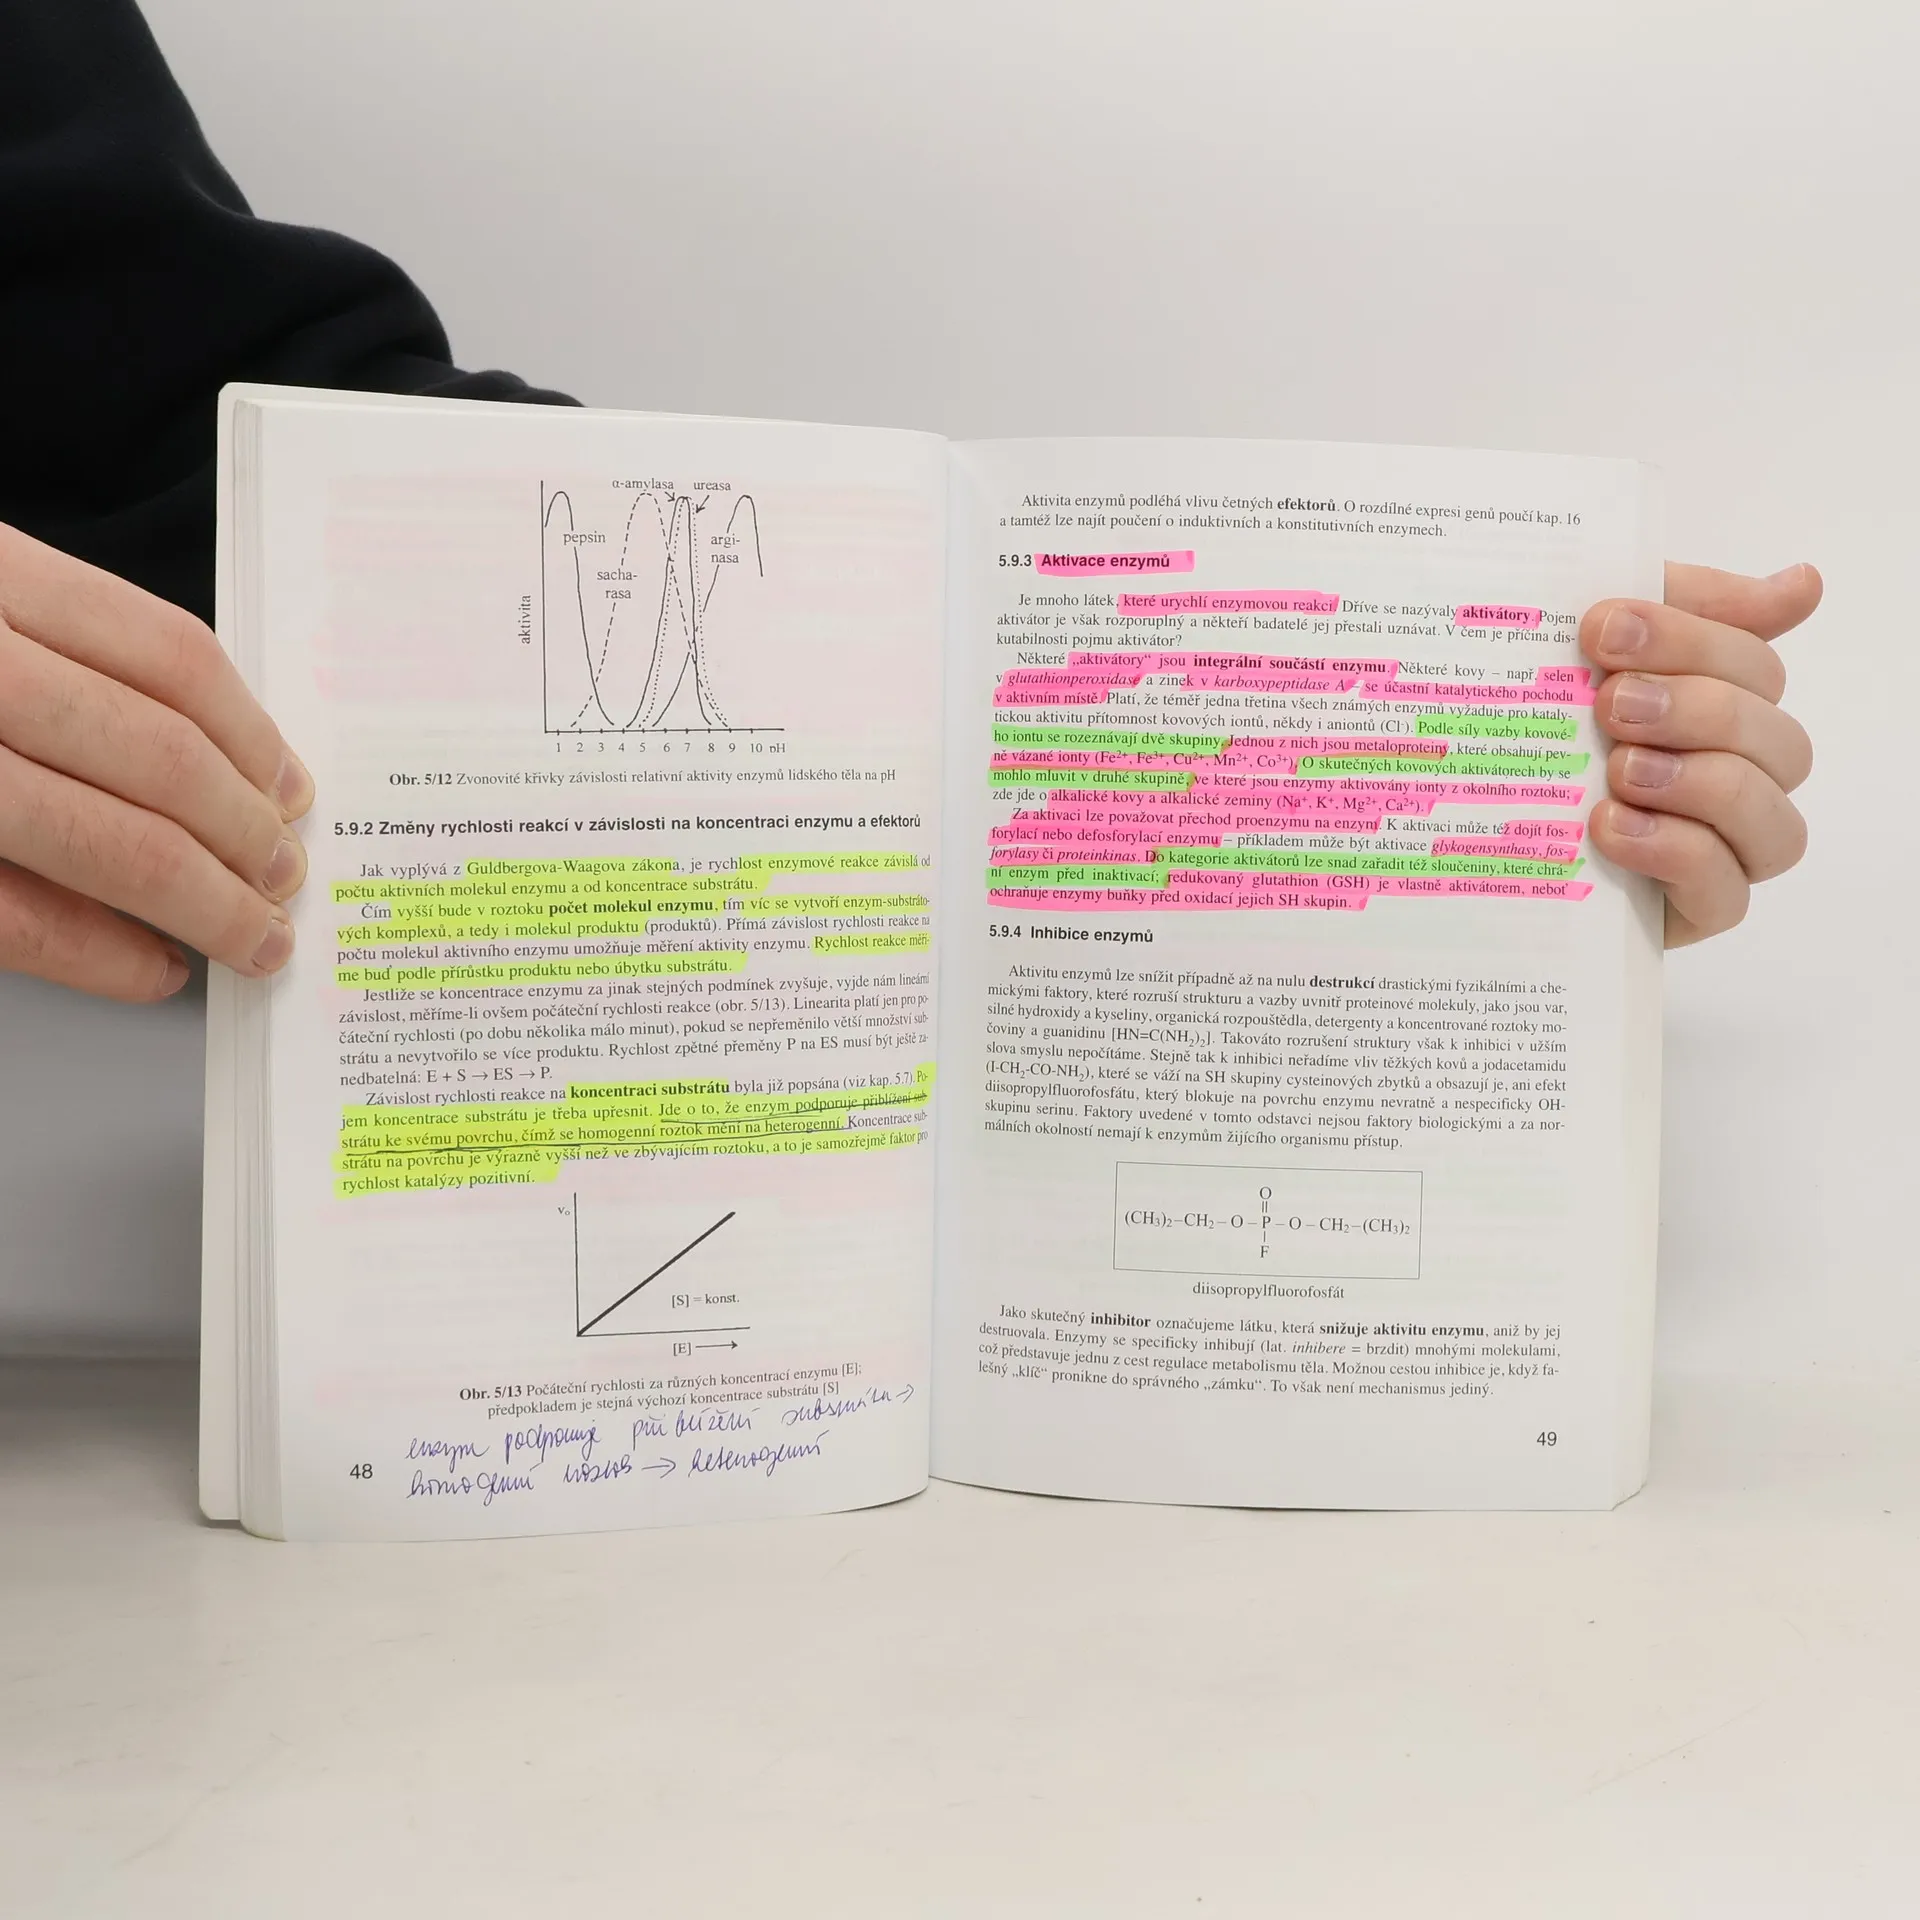 α-amylasa ureasa
pepsin
argi-
nasa
sacha-
rasa
aktivita
1 2 3 4 5 6 7 8 9 10 pH
Obr. 5/12 Zvonovité křivky závislosti relativní aktivity enzymů lidského těla na pH
5.9.2 Změny rychlosti reakcí v závislosti na koncentraci enzymu a efektorů
Jak vyplývá z Guldbergova-Waagova zákona, je rychlost enzymové reakce závislá od
počtu aktivních molekul enzymu a od koncentrace substrátu.
Čím vyšší bude v roztoku počet molekul enzymu, tím víc se vytvoří enzym-substráto-
vých komplexů, a tedy i molekul produktu (produktů). Přímá závislost rychlosti reakce na
počtu molekul aktivního enzymu umožňuje měření aktivity enzymu. Rychlost reakce měří-
me buď podle přírůstku produktu nebo úbytku substrátu.
Jestliže se koncentrace enzymu za jinak stejných podmínek zvyšuje, vyjde nám lineární
závislost, měříme-li ovšem počáteční rychlosti reakce (obr. 5/13). Linearita platí jen pro po-
čáteční rychlosti (po dobu několika málo minut), pokud se nepřeměnilo větší množství sub-
strátu a nevytvořilo se více produktu. Rychlost zpětné přeměny P na ES musí být ještě za-
nedbatelná: E + S → ES → P.
Závislost rychlosti reakce na koncentraci substrátu byla již popsána (viz kap. 5.7). Po-
jem koncentrace substrátu je třeba upřesnit. Jde o to, že enzym podporuje přiblížení sub-
strátu ke svému povrchu, čímž se homogenní roztok mění na heterogenní. Koncentrace sub-
strátu na povrchu je výrazně vyšší než ve zbývajícím roztoku, a to je samozřejmě faktor pro
rychlost katalýzy pozitivní.
v₀
[S] = konst.
[E] →
Obr. 5/13 Počáteční rychlosti za různých koncentrací enzymu [E];
předpokladem je stejná výchozí koncentrace substrátu [S]
enzym podporuje přiblížení substrátu →
homogenní roztok → heterogenní
48
Aktivita enzymů podléhá vlivu četných efektorů. O rozdílné expresi genů poučí kap. 16
a tamtéž lze najít poučení o induktivních a konstitutivních enzymech.
5.9.3 Aktivace enzymů
Je mnoho látek, které urychlí enzymovou reakci. Dříve se nazývaly aktivátory. Pojem
aktivátor je však rozporuplný a někteří badatelé jej přestali uznávat. V čem je příčina dis-
kutabilnosti pojmu aktivátor?
Některé „aktivátory“ jsou integrální součástí enzymu. Některé kovy – např. selen
v glutathionperoxidase a zinek v karboxypeptidase A – se účastní katalytického pochodu
v aktivním místě. Platí, že téměř jedna třetina všech známých enzymů vyžaduje pro kataly-
tickou aktivitu přítomnost kovových iontů, někdy i aniontů (Cl⁻). Podle síly vazby kovové-
ho iontu se rozeznávají dvě skupiny. Jednou z nich jsou metaloproteiny, které obsahují pev-
ně vázané ionty (Fe²⁺, Fe³⁺, Cu²⁺, Mn²⁺, Co³⁺). O skutečných kovových aktivátorech by se
mohlo mluvit v druhé skupině, ve které jsou enzymy aktivovány ionty z okolního roztoku;
zde jde o alkalické kovy a alkalické zeminy (Na⁺, K⁺, Mg²⁺, Ca²⁺).
Za aktivaci lze považovat přechod proenzymu na enzym. K aktivaci může též dojít fos-
forylací nebo defosforylací enzymu – příkladem může být aktivace glykogensynthasy, fos-
forylasy či proteinkinas. Do kategorie aktivátorů lze snad zařadit též sloučeniny, které chrá-
ní enzym před inaktivací; redukovaný glutathion (GSH) je vlastně aktivátorem, neboť
ochraňuje enzymy buňky před oxidací jejich SH skupin.
5.9.4 Inhibice enzymů
Aktivitu enzymů lze snížit případně až na nulu destrukcí drastickými fyzikálními a che-
mickými faktory, které rozruší strukturu a vazby uvnitř proteinové molekuly, jako jsou var,
silné hydroxidy a kyseliny, organická rozpouštědla, detergenty a koncentrované roztoky mo-
čoviny a guanidinu [HN=C(NH₂)₂]. Takováto rozrušení struktury však k inhibici v užším
slova smyslu nepočítáme. Stejně tak k inhibici neřadíme vliv těžkých kovů a jodacetamidu
(I-CH₂-CO-NH₂), které se váží na SH skupiny cysteinových zbytků a obsazují je, ani efekt
diisopropylfluorofosfátu, který blokuje na povrchu enzymu nevratně a nespecificky OH-
skupinu serinu. Faktory uvedené v tomto odstavci nejsou faktory biologickými a za nor-
málních okolností nemají k enzymům žijícího organismu přístup.
O
||
(CH₃)₂–CH₂–O–P–O–CH₂–(CH₃)₂
|
F
diisopropylfluorofosfát
Jako skutečný inhibitor označujeme látku, která snižuje aktivitu enzymu, aniž by jej
destruovala. Enzymy se specificky inhibují (lat. inhibere = brzdit) mnohými molekulami,
což představuje jednu z cest regulace metabolismu těla. Možnou cestou inhibice je, když fa-
lešný „klíč“ pronikne do správného „zámku“. To však není mechanismus jediný.
49